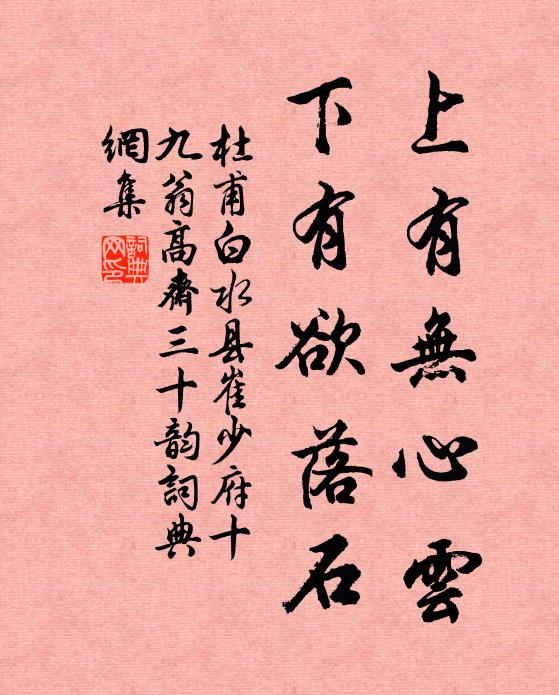 上有無心雲
下有欲落石
杜甫白水县崔少府十
九翁高齋三十韵詞典
網集
詞典
网印